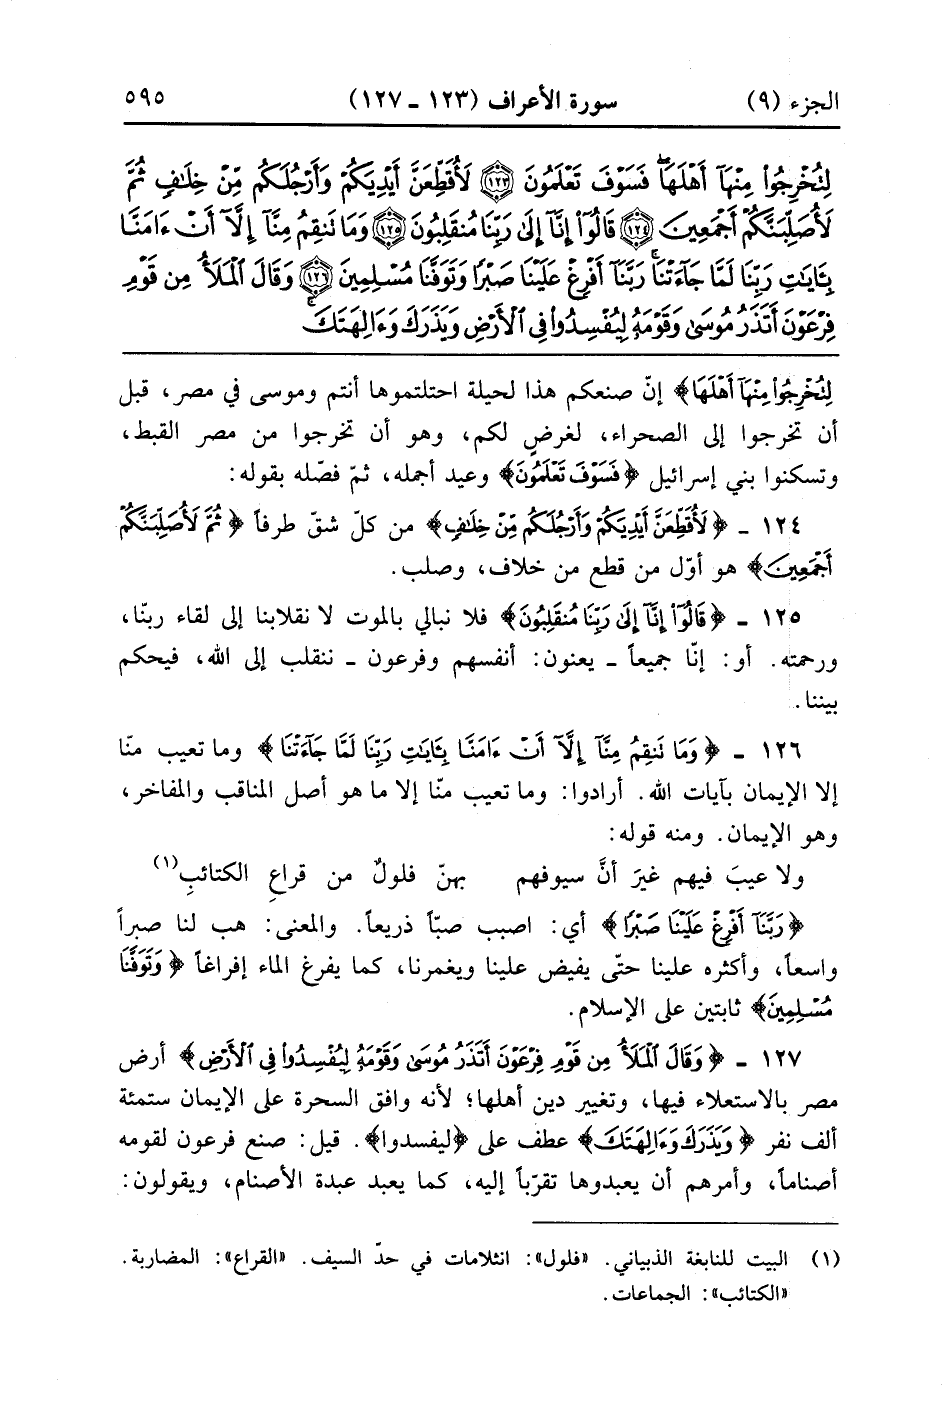 الجزء (٩) سورة الأعراف (١٢٣ ـ ١٢٧) ٥٩٥
لِنُخْرِجُوا۟ مِنْهَآ أَهْلَهَا ۖ فَسَوْفَ تَعْلَمُونَ ﴿١٢٣﴾ لَأُقَطِّعَنَّ أَيْدِيَكُمْ وَأَرْجُلَكُم مِّنْ خِلَٰفٍ ثُمَّ
لَأُصَلِّبَنَّكُمْ أَجْمَعِينَ ﴿١٢٤﴾ قَالُوٓا۟ إِنَّآ إِلَىٰ رَبِّنَا مُنقَلِبُونَ ﴿١٢٥﴾ وَمَا تَنقِمُ مِنَّآ إِلَّآ أَنْ ءَامَنَّا
بِـَٔايَٰتِ رَبِّنَا لَمَّا جَآءَتْنَا ۚ رَبَّنَآ أَفْرِغْ عَلَيْنَا صَبْرًا وَتَوَفَّنَا مُسْلِمِينَ ﴿١٢٦﴾ وَقَالَ ٱلْمَلَأُ مِن قَوْمِ
فِرْعَوْنَ أَتَذَرُ مُوسَىٰ وَقَوْمَهُۥ لِيُفْسِدُوا۟ فِى ٱلْأَرْضِ وَيَذَرَكَ وَءَالِهَتَكَ ۚ
لِتُخْرِجُوا۟ مِنْهَآ أَهْلَهَا﴾ إنّ صنعكم هذا لحيلة احتلتموها أنتم وموسى في مصر، قبل
أن تخرجوا إلى الصحراء، لغرضٍ لكم، وهو أن تخرجوا من مصر القبط،
وتسكنوا بني إسرائيل ﴿فَسَوْفَ تَعْلَمُونَ﴾ وعيد أجمله، ثمّ فصّله بقوله:
١٢٤ ـ ﴿لَأُقَطِّعَنَّ أَيْدِيَكُمْ وَأَرْجُلَكُم مِّنْ خِلَٰفٍ﴾ من كلّ شق طرفاً ﴿ثُمَّ لَأُصَلِّبَنَّكُمْ
أَجْمَعِينَ﴾ هو أوّل من قطع من خلاف، وصلب.
١٢٥ ـ ﴿قَالُوٓا۟ إِنَّآ إِلَىٰ رَبِّنَا مُنقَلِبُونَ﴾ فلا نبالي بالموت لا نقلابنا إلى لقاء ربنّا،
ورحمته. أو: إنّا جميعاً ـ يعنون: أنفسهم وفرعون ـ ننقلب إلى الله، فيحكم
بيننا.
١٢٦ ـ ﴿وَمَا تَنقِمُ مِنَّآ إِلَّآ أَنْ ءَامَنَّا بِـَٔايَٰتِ رَبِّنَا لَمَّا جَآءَتْنَا﴾ وما تعيب منّا
إلا الإيمان بآيات الله. أرادوا: وما تعيب منّا إلا ما هو أصل المناقب والمفاخر،
وهو الإيمان. ومنه قوله:
ولا عيبَ فيهم غيرَ أنَّ سيوفهم بهنّ فلولٌ من قراعِ الكتائبِ(١)
﴿رَبَّنَآ أَفْرِغْ عَلَيْنَا صَبْرًا﴾ أي: اصبب صبّاً ذريعاً. والمعنى: هب لنا صبراً
واسعاً، وأكثره علينا حتّى يفيض علينا ويغمرنا، كما يفرغ الماء إفراغاً ﴿وَتَوَفَّنَا
مُسْلِمِينَ﴾ ثابتين على الإسلام.
١٢٧ ـ ﴿وَقَالَ ٱلْمَلَأُ مِن قَوْمِ فِرْعَوْنَ أَتَذَرُ مُوسَىٰ وَقَوْمَهُۥ لِيُفْسِدُوا۟ فِى ٱلْأَرْضِ﴾ أرض
مصر بالاستعلاء فيها، وتغيير دين أهلها؛ لأنه وافق السحرة على الإيمان ستمئة
ألف نفر ﴿وَيَذَرَكَ وَءَالِهَتَكَ﴾ عطف على ﴿ليفسدوا﴾. قيل: صنع فرعون لقومه
أصناماً، وأمرهم أن يعبدوها تقرّباً إليه، كما يعبد عبدة الأصنام، ويقولون:
(١) البيت للنابغة الذبياني. «فلول»: انثلامات في حدّ السيف. «القراع»: المضاربة.
«الكتائب»: الجماعات.